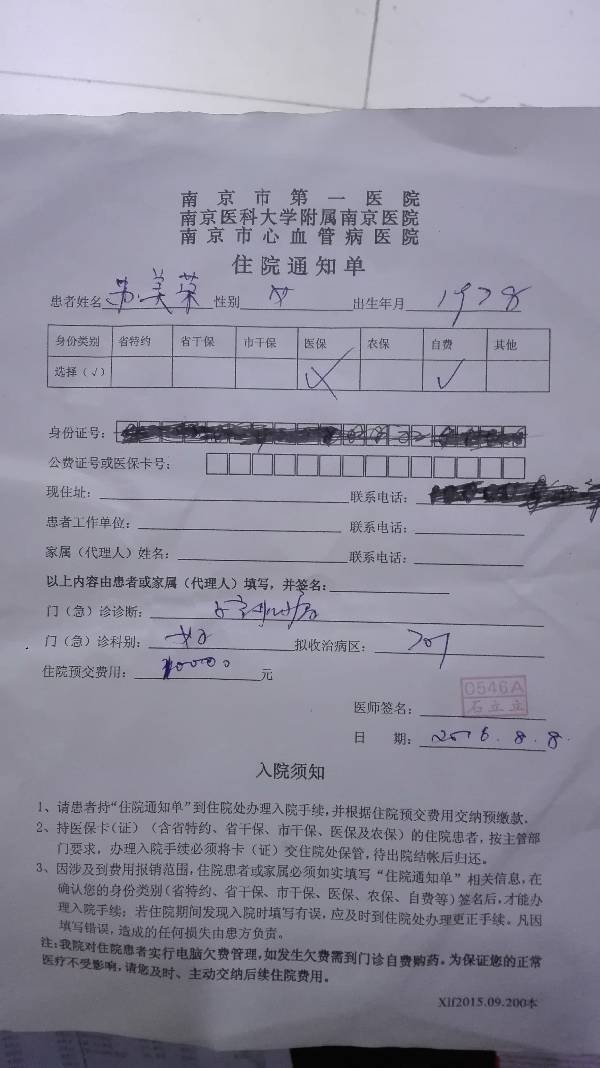 南京市第一医院
南京医科大学附属南京医院
南京市心血管病医院
住院通知单
患者姓名 苏美荣 性别 女 出生年月 1978
身份类别 省特约 省干保 市干保 医保 农保 自费 其他
选择（√） √ √
身份证号：
公费证号或医保卡号：
现住址： 联系电话：
患者工作单位： 联系电话：
家属（代理人）姓名： 联系电话：
以上内容由患者或家属（代理人）填写，并签名：
门（急）诊诊断：
门（急）诊科别： 妇 拟收治病区：
住院预交费用： 10000 元
0546A
医师签名： 石立立
日 期： 2016.8.8.
入院须知
1、请患者持“住院通知单”到住院处办理入院手续，并根据住院预交费用交纳预缴款．
2、持医保卡（证）（含省特约、省干保、市干保、医保及农保）的住院患者，按主管部
门要求，办理入院手续必须将卡（证）交住院处保管，待出院结帐后归还。
3、因涉及到费用报销范围，住院患者或家属必须如实填写“住院通知单”相关信息，在
确认您的身份类别（省特约、省干保、市干保、医保、农保、自费等）签名后，才能办
理入院手续；若住院期间发现入院时填写有误，应及时到住院处办理更正手续。凡因
填写错误，造成的任何损失由患方负责。
注：我院对住院患者实行电脑欠费管理，如发生欠费需到门诊自费购药。为保证您的正常
医疗不受影响，请您及时、主动交纳后续住院费用。
Xlf2015.09.200本